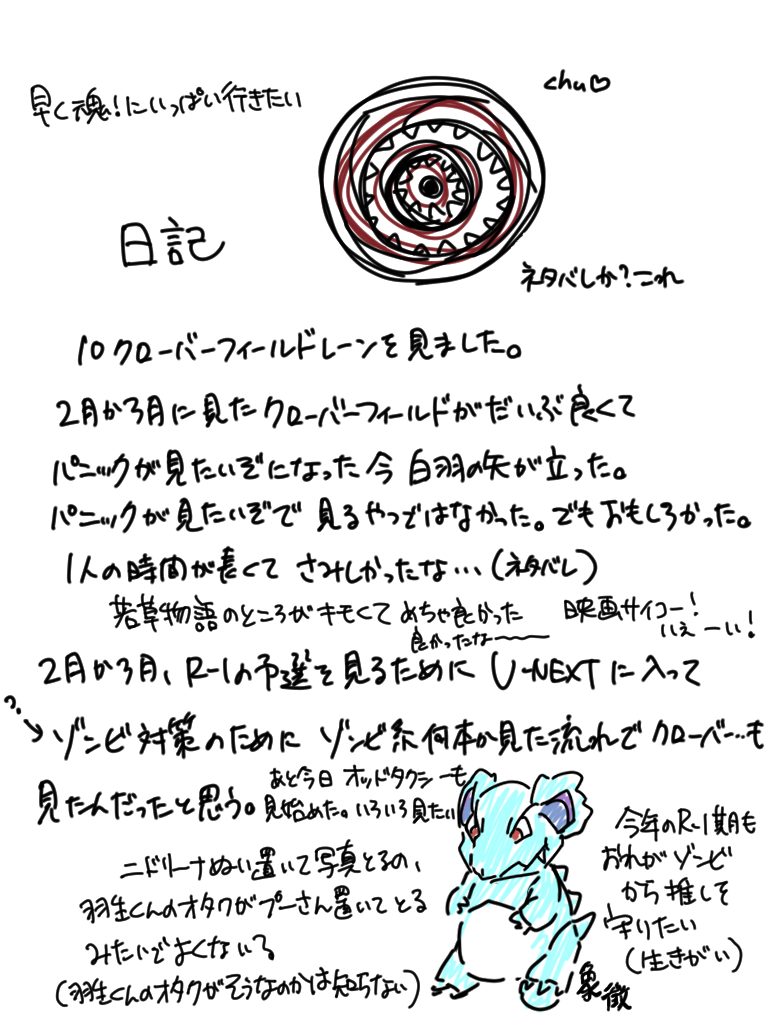 早く魂!にいっぱい行きたい
chu♡
日記
ネタバレか?これ
10クローバーフィールドレーンを見ました。
2月か3月に見たクローバーフィールドがだいぶ良くて
パニックが見たいぞになった今 白羽の矢が立った。
パニックが見たいぞで 見るやつではなかった。でもおもしろかった。
1人の時間が長くて さみしかったな…(ネタバレ)
若草物語のところがキモくて めちゃ良かった
良かったな〜〜
映画サイコー!
いえーい!
2月か3月、R-1の予選を見るために U-NEXTに入って
?→ゾンビ対策のために ゾンビ系何本か見た流れで クローバー…も
見たんだったと思う。
あと今日 オッドタクシーも
見始めた。いろいろ見たい
ニドリーナぬい置いて写真とるの、
羽生くんのオタクがプーさん置いてとる
みたいでよくない?
(羽生くんのオタクがそうなのかは知らない)
今年のR-1期も
おれがゾンビ
から推しを
守りたい
(生きがい)
象徴